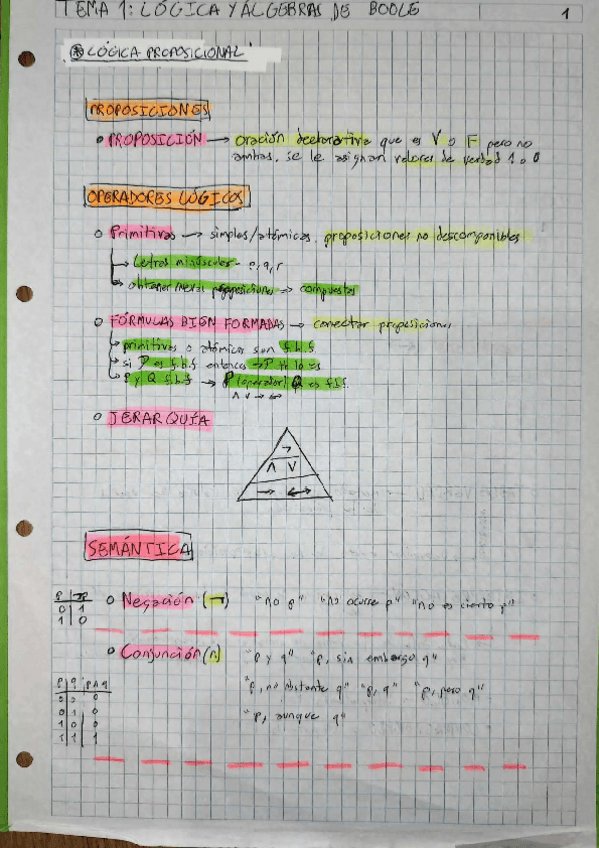 TEMA 1: LÓGICA Y ÁLGEBRAS DE BOOLE 1
⊛ LÓGICA PROPOSICIONAL
PROPOSICIONES
• PROPOSICIÓN → oración declarativa que es V o F pero no
ambas, se le asignan valores de verdad 1 o 0
OPERADORES LÓGICOS
o Primitivas → simples/atómicas, proposiciones no descomponibles
↳ Letras minúsculas - p, q, r
↳ obtener nuevas proposiciones → compuestas
o FÓRMULAS BIEN FORMADAS → conectar proposiciones
↳ primitivas o atómicas son f.b.f
↳ si P es f.b.f entonces ¬P lo es
↳ P y Q f.b.f → P (operador) Q es f.b.f.
∧ ∨ → ↔
o JERARQUÍA
¬
∧ ∨
→ ↔
SEMÁNTICA
p ¬p
0 1
1 0
o Negación (¬) "no p" "no ocurre p" "no es cierto p"
o Conjunción (∧) "p y q" "p, sin embargo q"
"p, no obstante q" "p, q" "p, pero q"
"p, aunque q"
p q p∧q
0 0 0
0 1 0
1 0 0
1 1 1